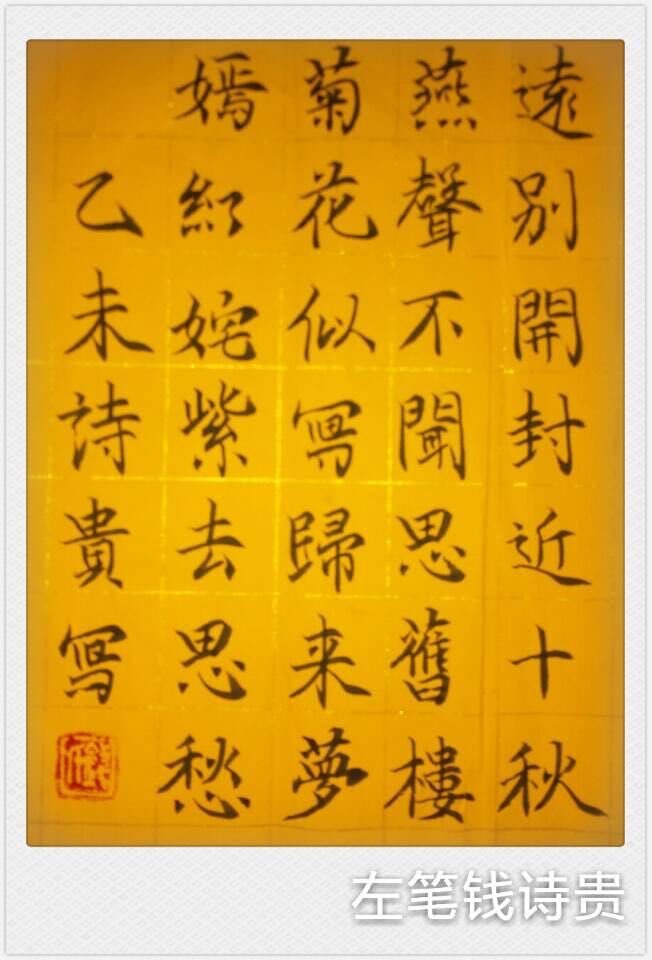 遠别開封近十秋
燕聲不聞思舊樓
菊花似寫歸来夢
嫣紅姹紫去思愁
乙未詩貴寫
左笔钱诗贵